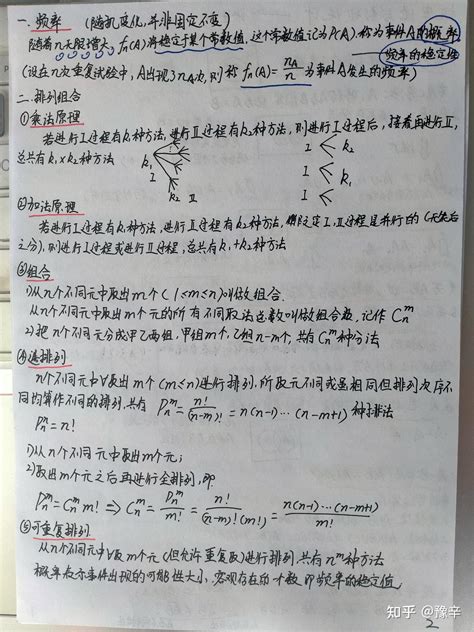 一. 频率 (随机变化,并非固定不变)
随着n无限增大, fn(A)将稳定于某个常数值. 这个常数值记为P(A), 称为事件A的概率
频率的稳定性
(设在n次重复试验中, A出现了nA次, 则称 fn(A)= nA/n 为事件A发生的频率)
二. 排列组合
①乘法原理
若进行I过程有k1种方法, 进行II过程有k2种方法, 则进行I过程后, 接着再进行II,
总共有k1×k2种方法
k1
I
k2 II
I
k1
I
k2
②加法原理
若进行I过程有k1种方法, 进行II过程有k2种方法, 假定I, II过程是并行的(无先后
之分), 则进行I过程或进行II过程, 总共有k1+k2种方法
③组合
1)从n个不同元中取出m个(1≤m≤n)叫做组合.
从n个不同元中取出m个元的所有不同取法总数叫做组合数, 记作 Cₙᵐ
2)把n个不同元分成甲乙两组, 甲组m个, 乙组n-m个, 共有Cₙᵐ种分法
④选排列
n个不同元中∀取出m个(m≤n)进行排列, 所取元不同或虽相同但排列次序不
同均算作不同的排列, 共有 Pₙᵐ = n!/(n-m)! = n(n-1)···(n-m+1) 种排法
Pₙⁿ = n!
1)从n个不同元中取出m个元;
2)取出m个元之后再进行全排列, 即
Pₙᵐ = Cₙᵐ m! ⇒ Cₙᵐ = Pₙᵐ/m! = n!/(n-m)!(m!) = n(n-1)···(n-m+1)/m!
⑤可重复排列
从n个不同元中∀取m个元(但允许重复取)进行排列, 共有nᵐ种方法
概率表示事件出现的可能性大小, 客观存在的个数即频率的稳定值.
知乎 @豫辛
2